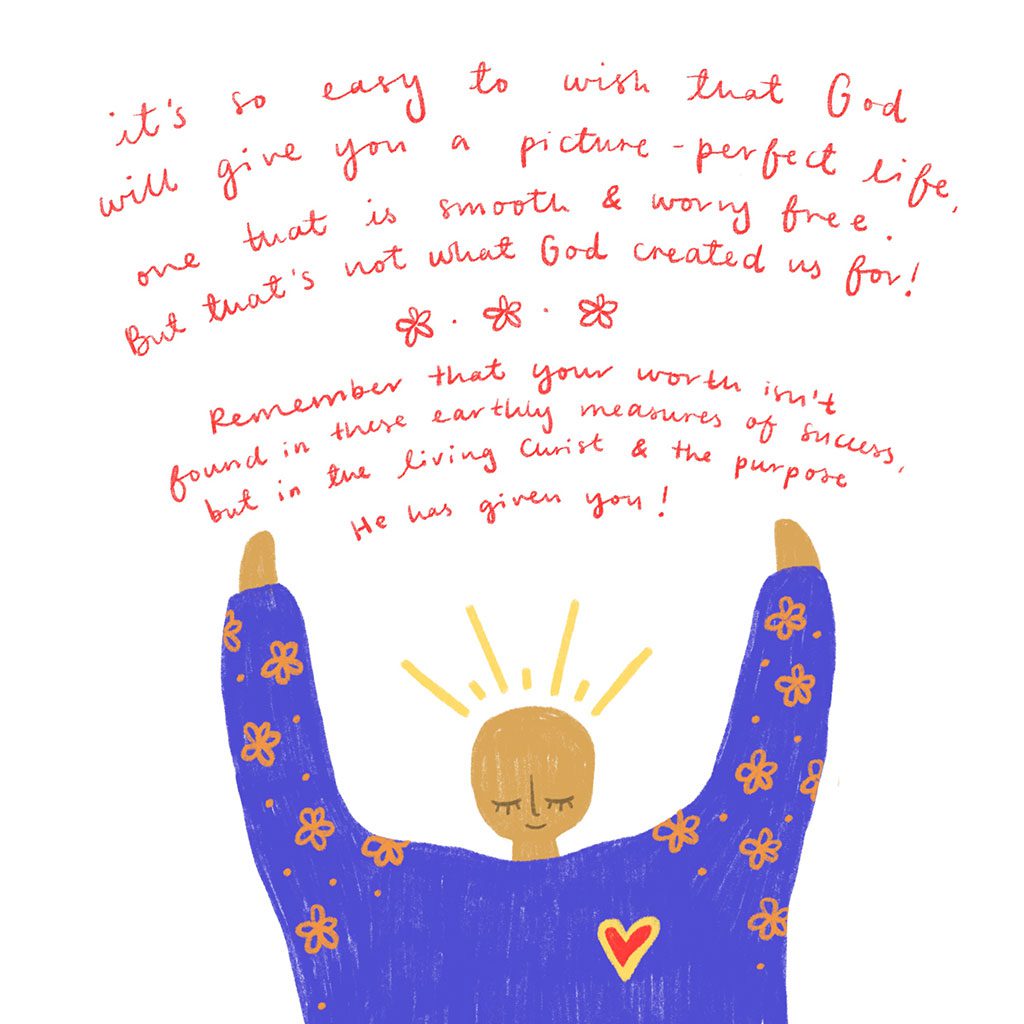 it's so easy to wish that God
will give you a picture-perfect life,
one that is smooth & worry free.
But that's not what God created us for!
Remember that your worth isn't
found in these earthly measures of success,
but in the living Christ & the purpose
He has given you!